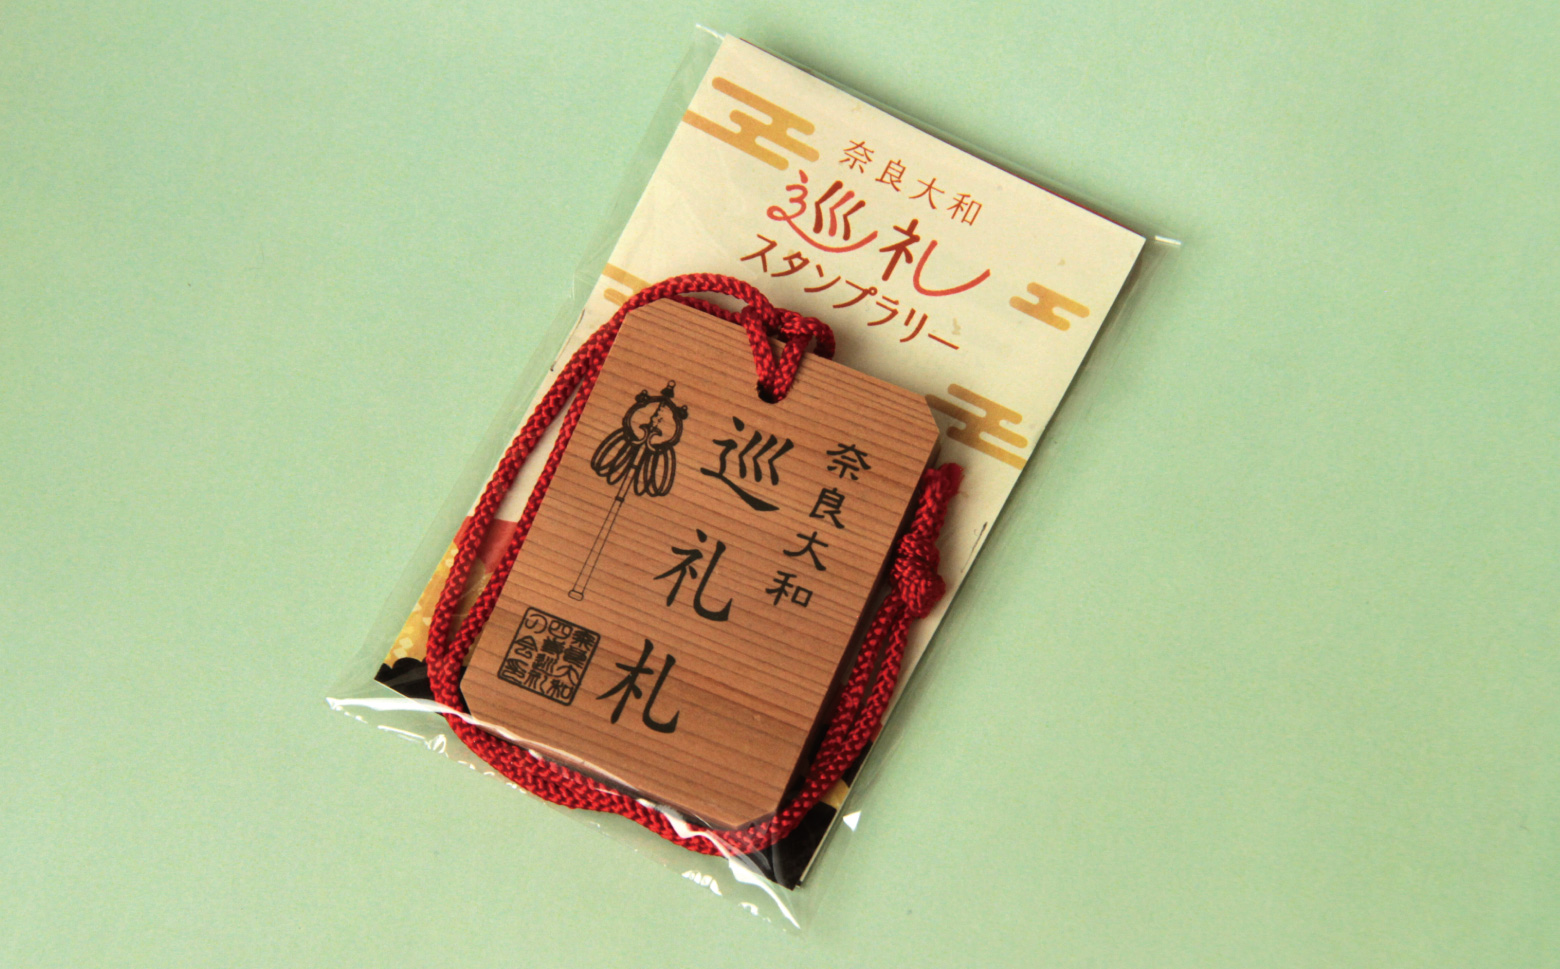 奈良大和
巡礼
スタンプラリー
奈良大和
巡礼札
奈良大和
四寺巡礼
の会